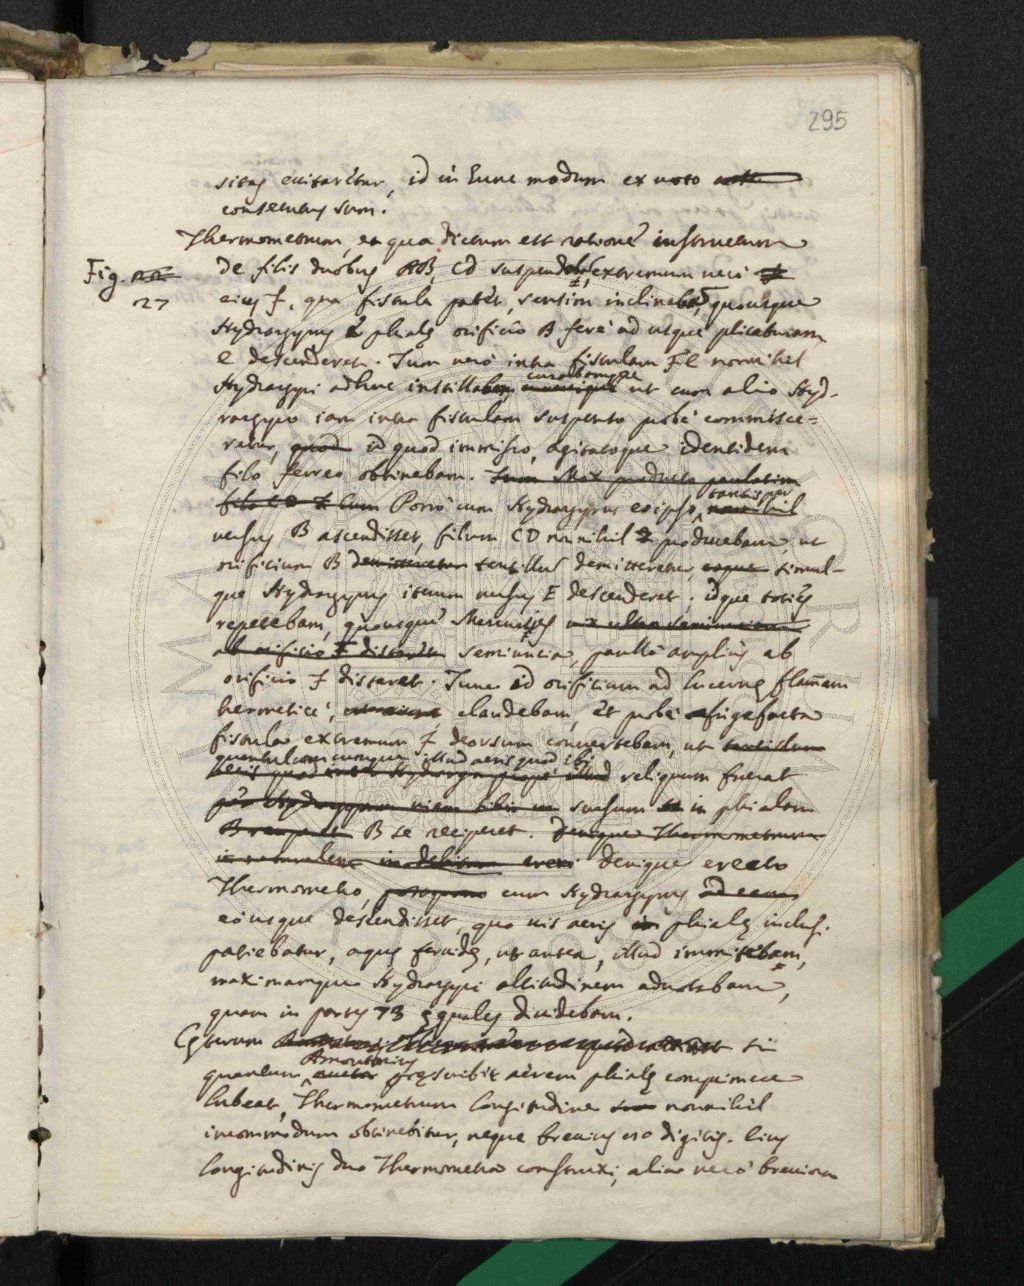 295
sitas euitaretur, id in hunc modum ex uoto
consecutus sum.
Thermometrum, ea qua dictum est ratione instructum
Fig. 22
27
de filis duobus AB, CD suspendebā, extremum uero
eius F, qua fistula patet, sensim inclinabā, quousque
Hydrargyrus è phialę orificio B fere ad usque plicaturam
E descenderet. Tum uero intra fistulam FE nonnihil
Hydrargyri adhuc instillabam, curabamque ut cum alio Hyd-
rargyro iam intra fistulam suspenso probè commisce=
retur, quod id quod immisso, agitatoque identidem
filo ferreo obtinebam. Tum Mox producto paulatim
filo CD Cum Porrò cum Hydrargyrus eo ipso, tantisper nonnihil
uersus B ascendisset, filum CD nonnihil producebam, ut
orificium B demitteretur tantillum demitteretur, eoque simul-
que Hydrargyrus iterum uersus E descenderet; idque toties
repetebam, quousque Mercurius
ab orificio F distaret semiuncia, paullò amplius ab
orificio F distaret. Tunc id orificium ad lucernę flam̄am
hermeticè, claudebam, et probè refrigefacta
fistula extremum F deorsum conuertebam, ut tantillum
quantulumcumque illud aeris quod ibi
reliquum fuerat
sursum in phialam
B se reciperet. Denique Thermometrum
denique erecto
Thermometro, cum Hydrargyrus
eò usque descendisset, quo uis aeris in phialę inclusi
patiebatur, aquę feruidę, ut antea, illud immittebam,
maximamque Hydrargyri altitudinem adnotabam,
quam in partes 73 ęquales diuidebam.
Cęterum si
quantum Amontonius auctor pręscribit aërem phialę comprimere
lubeat, Thermometrum longitudine nonnihil
incommodum obtinebitur, neque breuius digitis. Eius
longitudinis duo Thermometra construxi, alia uerò breuiora